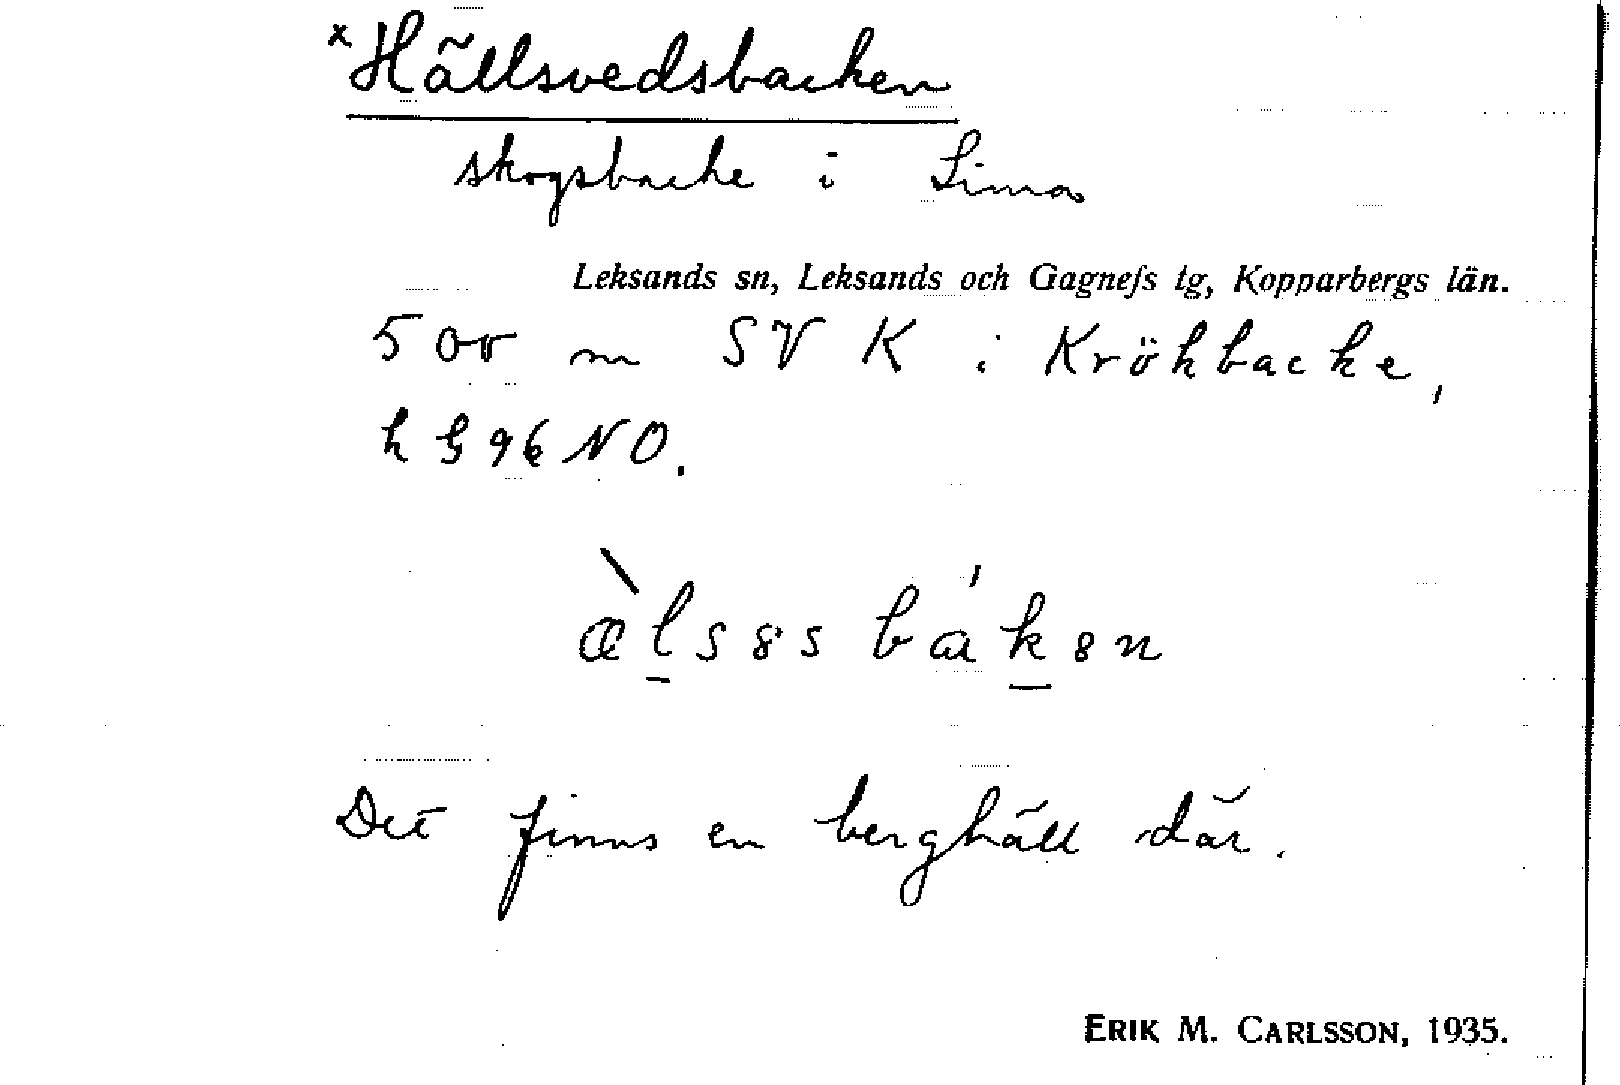 x Hällsvedsbacken
skogsbacke i Lima
Leksands sn, Leksands och Gagnefs tg, Kopparbergs län.
500 m SV K i Krökbacke,
96 NO.
Det finns en berghäll där.
ERIK M. CARLSSON, 1935.